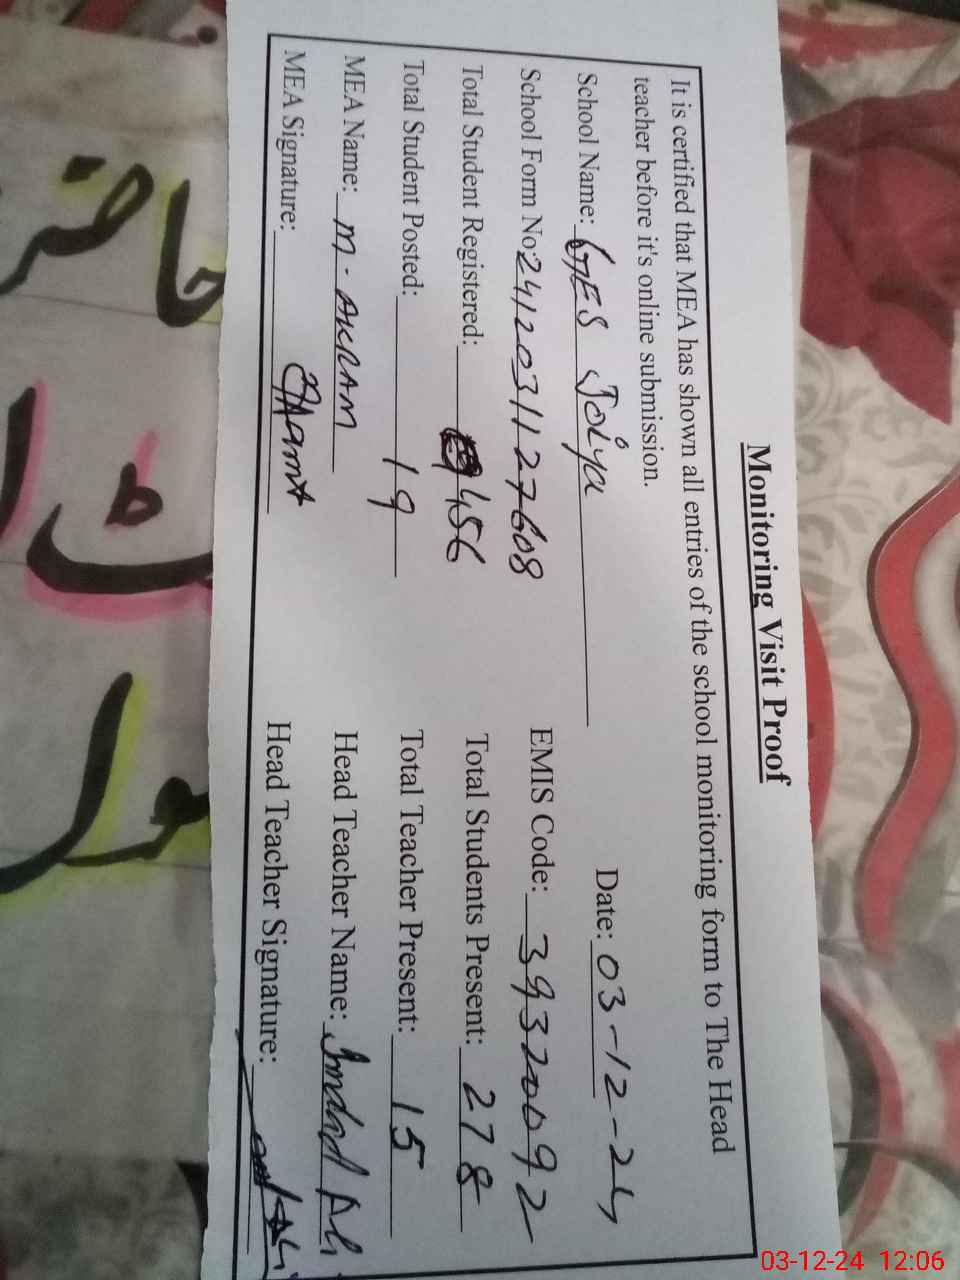 Monitoring Visit Proof
It is certified that MEA has shown all entries of the school monitoring form to The Head
teacher before it's online submission.
School Name: GES Joiya Date: 03-12-24
School Form No: 2412031127608 EMIS Code: 39320092
Total Student Registered: 456 Total Students Present: 278
Total Student Posted: 19 Total Teacher Present: 15
MEA Name: M. AKRAM Head Teacher Name: Imdad Ali
MEA Signature: Head Teacher Signature:
03-12-24 12:06